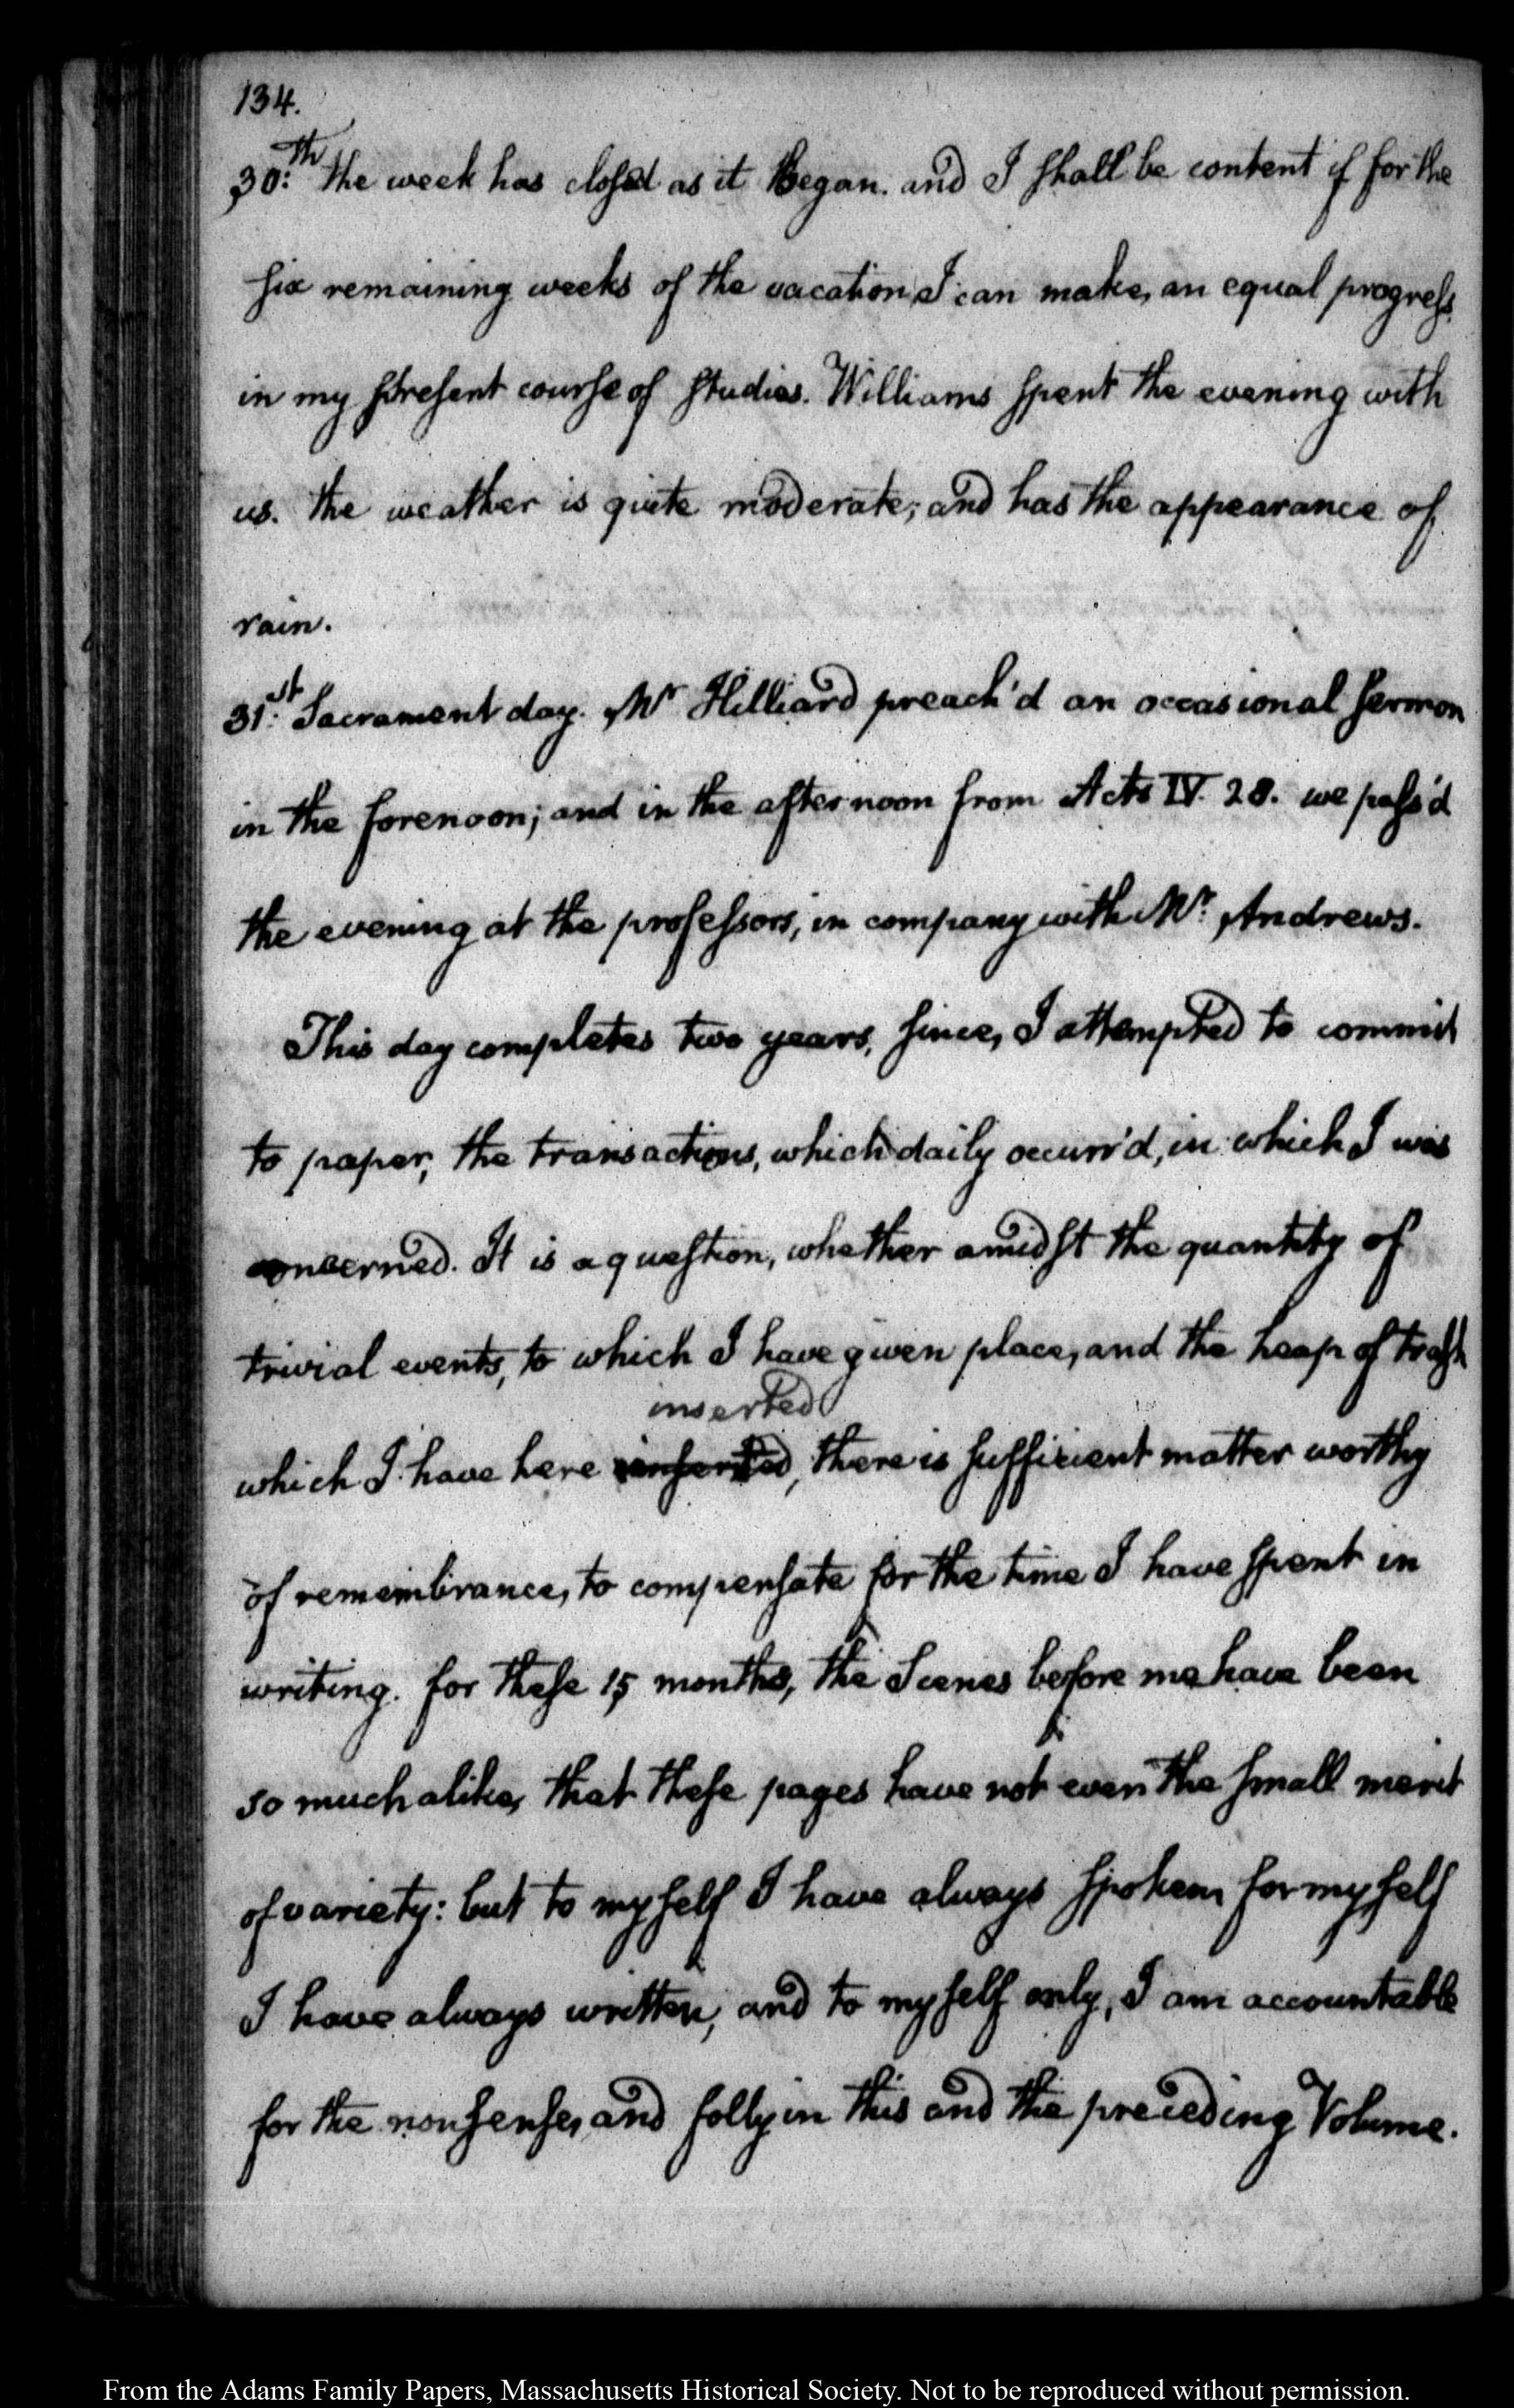 134.
30.th the week has closed as it Began. and I shall be content if for the
six remaining weeks of the vacation, I can make, an equal progress
in my present course of studies. Williams spent the evening with
us. the weather is quite moderate; and has the appearance of
rain.
31.st Sacrament day. Mr Hilliard preach'd an occasional sermon
in the forenoon; and in the afternoon from Acts IV. 28. we pass'd
the evening at the professors, in company with Mr. Andrews.
This day completes two years, since, I attempted to commit
to paper, the transactions, which daily occurr'd, in which I was
concerned. It is a question, whether amidst the quantity of
trivial events, to which I have given place, and the heap of trash
inserted
which I have here inserted, there is sufficient matter worthy
of remembrance, to compensate for the time I have spent in
writing. for these 15 months, the Scenes before me have been
so much alike, that these pages have not even the small merit
of variety: but to myself I have always spoken, for myself
I have always written, and to myself only, I am accountable
for the nonsense, and folly in this and the preceding Volume.
From the Adams Family Papers, Massachusetts Historical Society. Not to be reproduced without permission.